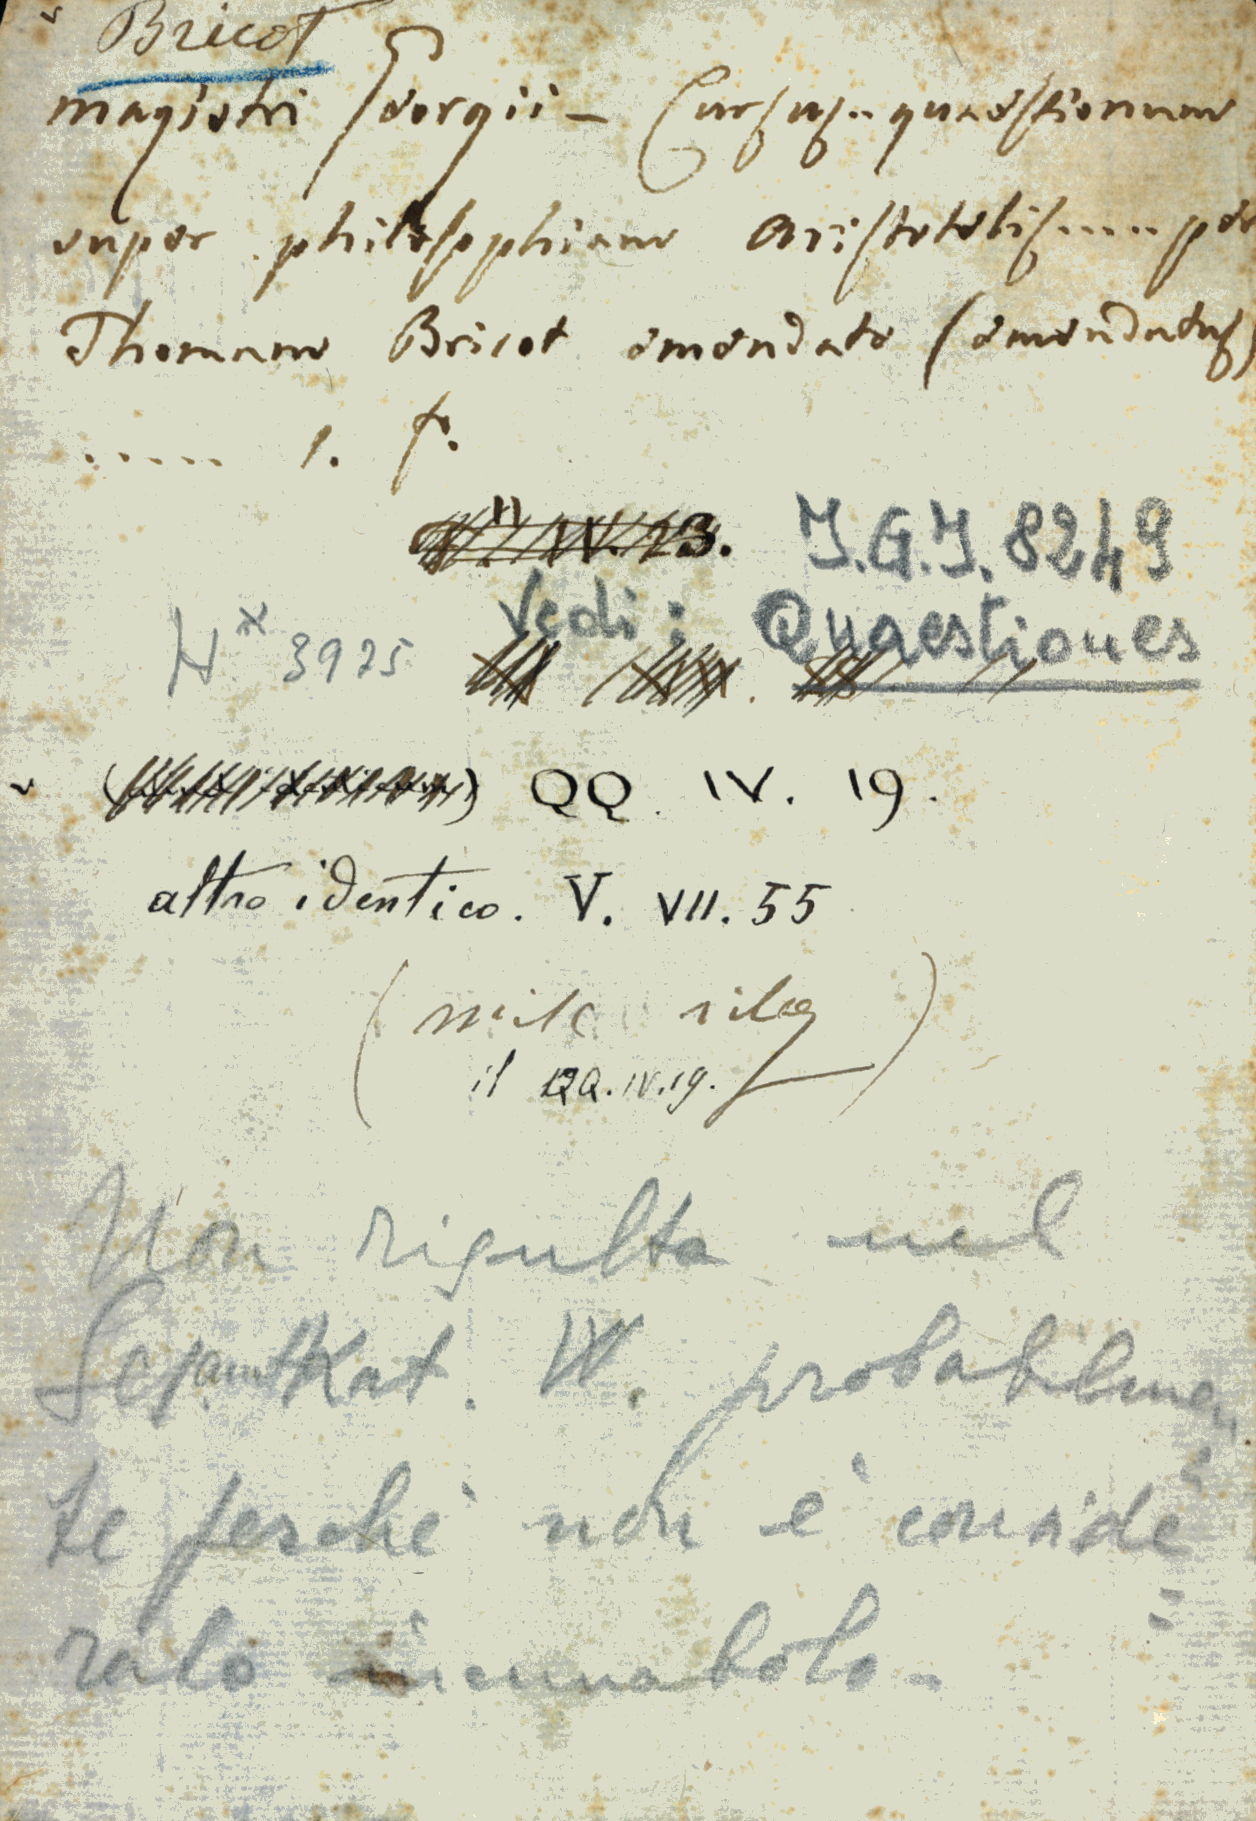 Bricot
magistri Georgii – Cursus.. quaestionum
super philosophiam Aristotelis.... per
Thomam Bricot emendate (emendatus)
..... s. f.
IV. 23.
I.G.I. 8249
Vedi: Quaestiones
H* 3975
QQ. IV. 19.
altro identico. V. VII. 55
(
il QQ. IV. 19.
)
Non risulta nel
Gesamtkat. W. probabilmen
te perchè non è conside
=
rato incunabolo –